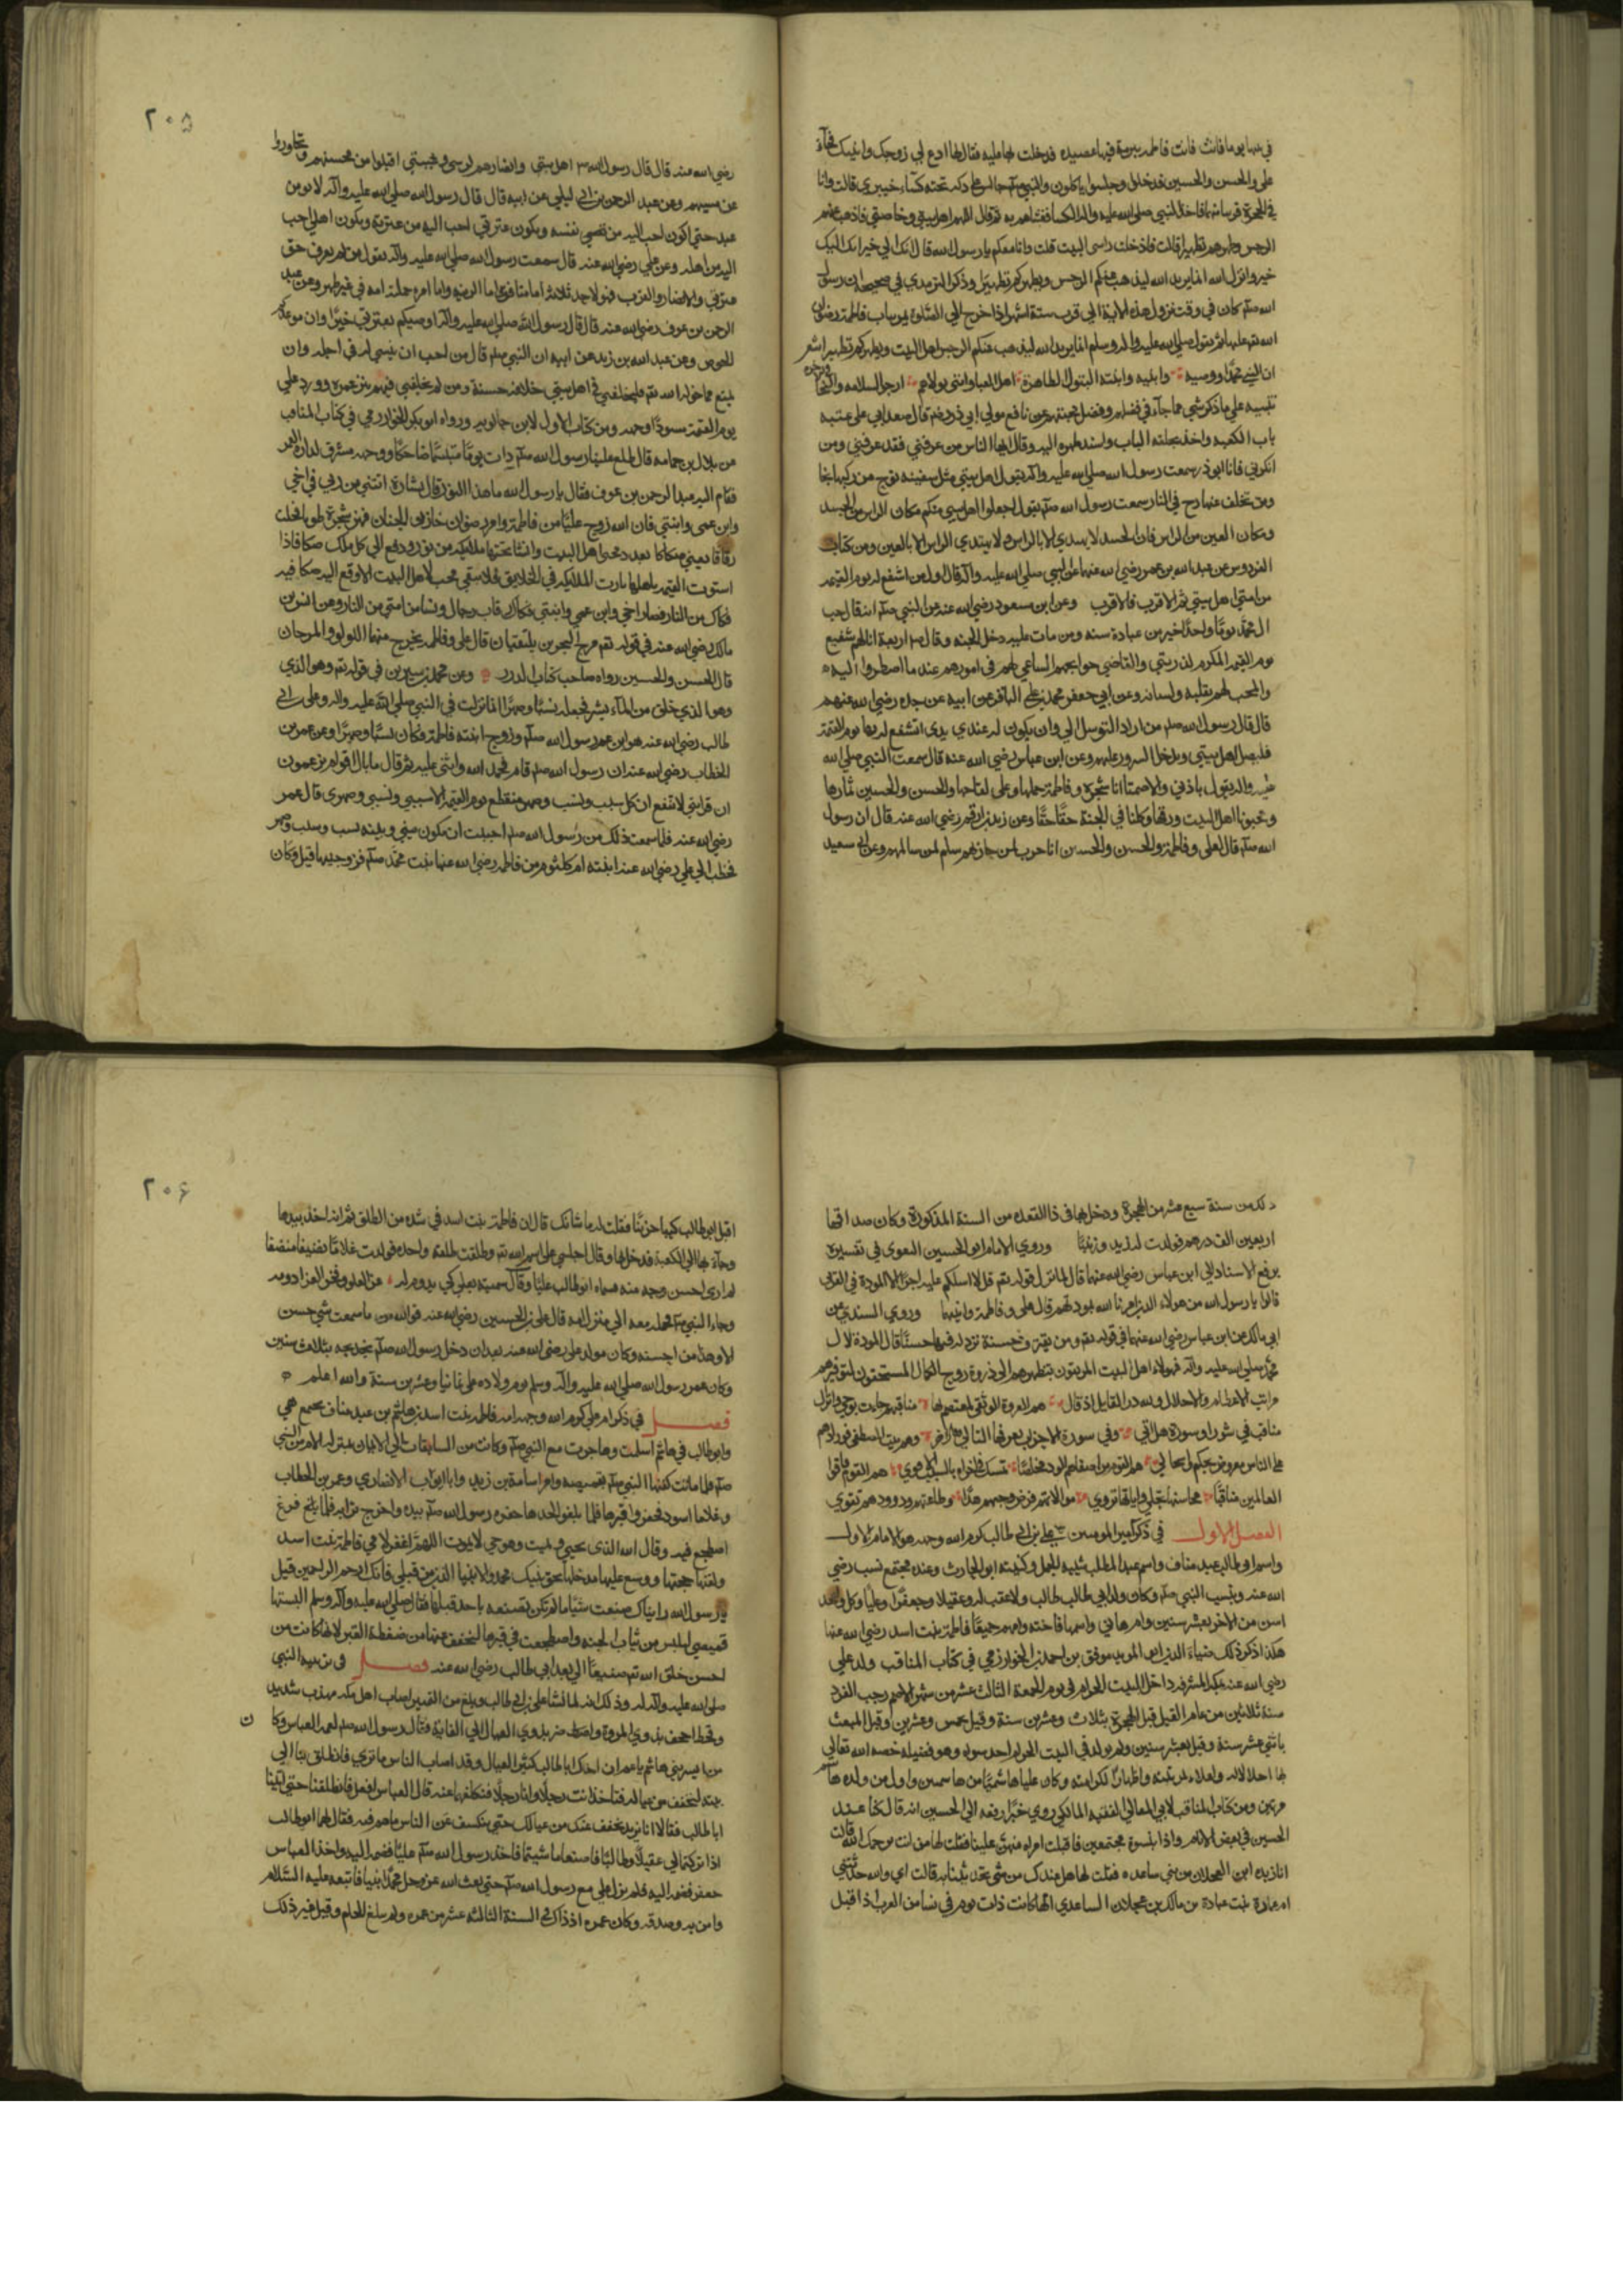 في بيتها يوما فاتت فاطمه ببرمة فيها عصيده فدخلت بها عليه فقال لها ادع لي زوجك وابنيك فجآء
علي والحسن والحسين فدخلوا وجلسوا ياكلون والنبي صلعم جالس علي دكه تحته كسآء خيبري قالت وانا
في الحجرة قريبا منهم فاخذ النبي صلي الله عليه واله الكسا فغشاهم به ثم قال اللهم اهل بيتي وخاصتي فاذهب عنهم
الرجس وطهرهم تطهيرا قالت فادخلت راسي البيت قلت وانا معكم يا رسول الله قال انك الي خير انك الي
خير وانزل الله انما يريد الله ليذهب عنكم الرجس ويطهركم تطهيرا وذكر الترمذي في صحيحه ان رسول
الله صلعم كان في وقت نزول هذه الاية الي قرب ستة اشهر اذا خرج الي الصلوة يمر بباب فاطمة رضوان
الله عليها ثم يقول صلي الله عليه واله وسلم انما يريد الله ليذهب عنكم الرجس اهل البيت ويطهركم تطهيرا شعر
ان النبي محمدا ووصيه وابنيه وابنته البتول الطاهرة اهل العبا وانني بولائهم ارجو السلامه والنجا
تنبيه علي ما ذكر شي مما جآء في فضلهم وفضل محبتهم عن نافع مولي ابي ذر رضه قال صعد ابي علي عتبه
باب الكعبه واخذ بحلقه الباب واسند ظهره اليه وقال ايها الناس من عرفني فقد عرفني ومن
انكرني فانا ابو ذر سمعت رسول الله صلي الله عليه واله يقول اهل بيتي مثل سفينة نوح من ركبها نجا
ومن تخلف عنها زج في النار سمعت رسول الله صلعم يقول اجعلوا اهل بيتي منكم مكان الراس من الجسد
ومكان العين من الراس فان الجسد لا يهتدي الا بالراس ولا يهتدي الراس الا بالعين ومن كتاب
الفردوس عن عبد الله بن عمر رضي الله عنهما عن النبي صلي الله عليه واله قال اول من اشفع له يوم القيمه
من امتي اهل بيتي ثم الاقرب فالاقرب وعن ابن مسعود رضي الله عنه عن النبي صلعم انه قال حب
ال محمد يوما واحدا خير من عبادة سنه ومن مات عليه دخل الجنه وقال صم اربعة انا لهم شفيع
يوم القيمه المكرم لذريتي والقاضي حوايجهم الساعي لهم في امورهم عند ما اضطروا اليه
والمحب لهم بقلبه ولسانه وعن ابي جعفر محمد بن علي الباقر عن ابيه عن جده رضي الله عنهم
قال قال رسول الله صلعم من اراد التوسل الي وان يكون له عندي يد اشفع له بها يوم القيمة
فليصل اهل بيتي ويدخل السرور عليهم وعن ابن عباس رضي الله عنه قال سمعت النبي صلي الله
عليه واله يقول باذني والا صمتا انا شجرة وفاطمة حملها وعلي لقاحها والحسن والحسين ثمارها
ومحبونا اهل البيت ورقها وكلنا في الجنة حقا حقا وعن زيد بن ارقم رضي الله عنه قال ان رسول
الله صلعم قال لعلي وفاطمة والحسن والحسين انا حرب لمن حاربهم سلم لمن سالمهم وعن ابي سعيد
٢٠٥
رضي الله عنه قال قال رسول الله صم اهل بيتي والانصار هم كرشي وعيبتي اقبلوا من محسنهم وتجاوزوا
عن مسيهم وعن عبد الرحمن بن ابي ليلي عن ابيه قال قال رسول الله صلي الله عليه واله لا يومن
عبد حتي اكون احب اليه من نفسه ويكون عترتي احب اليه من عترته ويكون اهلي احب
اليه من اهله وعن علي رضي الله عنه قال سمعت رسول الله صلي الله عليه واله يقول من لم يعرف حق
عترتي والانصار والعرب فهو لاحد ثلاثة اما منافق واما لزنيه واما امرء حملته امه في غير طهر وعن عبد
الرحمن بن عوف رضي الله عنه قال قال رسول الله صلي الله عليه واله اوصيكم بعترتي خيرا وان موعدكم
الحوض وعن عبد الله بن زيد عن ابيه ان النبي صلعم قال من احب ان ينسي له في اجله وان
يمتع بما خوله الله تع فليخلفني في اهل بيتي خلافة حسنة ومن لم يخلفني فيهم بتر عمره وورد علي
يوم القيمة مسودا وجهه ومن كتاب الاول لابن خالويه ورواه ابو بكر الخوارزمي في كتاب المناقب
عن بلال بن حمامه قال طلع علينا رسول الله صلعم ذات يوم متبسما ضاحكا ووجهه مشرق كدارة القمر
فقام اليه عبد الرحمن بن عوف فقال يا رسول الله ما هذا النور قال بشارة اتتني من ربي في اخي
وابن عمي وابنتي فان الله زوج عليا من فاطمة وامر رضوان خازن الجنان فهز شجرة طوبي فحملت
رقاقا يعني صكاكا بعدد محبي اهل البيت وانشا تحتها ملائكه من نور ودفع الي كل ملك صكا فاذا
استوت القيمه باهلها نادت الملائكه في الخلايق فلا يبقي محب لاهل البيت الا دفع اليه صكا فيه
فكاكه من النار فصار اخي وابن عمي وابنتي فكاك رقاب رجال ونسا من امتي من النار وعن انس بن
مالك رضي الله عنه في قوله تعم مرج البحرين يلتقيان قال علي وفاطمه يخرج منهما اللولو والمرجان
قال الحسن والحسين رواه صاحب كتاب الدرر وعن محمد بن سيرين في قوله تع وهو الذي
وهو الذي خلق من المآء بشرا فجعله نسبا وصهرا انها نزلت في النبي صلي الله عليه واله وعلي بن ابي
طالب رضي الله عنه هو ابن عم رسول الله صلعم وزوج ابنته فاطمة فكان نسبا وصهرا وعن عمر بن
الخطاب رضي الله عنه ان رسول الله صلعم قام فحمد الله واثني عليه ثم قال ما بال اقوام يزعمون
ان قرابتي لا تنفع ان كل سبب ونسب وصهر منقطع يوم القيمه الا سببي ونسبي وصهري قال عمر
رضي الله عنه فلما سمعت ذلك من رسول الله صلعم احببت ان يكون بيني وبينه نسب وسبب وصهر
فخطب الي علي رضي الله عنه ابنته ام كلثوم من فاطمه رضي الله عنها بنت محمد صلعم فزوجنيها قيل وكان
ذلك من سنة سبع عشر من الهجرة ودخل بها في ذا القعده من السنة المذكورة وكان صداقها
اربعين الف درهم فولدت له زيد وزينبا وروي الامام ابو الحسين البغوي في تفسيره
يرفع الاسناد الي ابن عباس رضي الله عنهما قال لما نزل قوله تع قل لا اسلكم عليه اجرا الا المودة في القربي
قالوا يا رسول الله من هولاء الذين امرنا الله بمودتهم قال علي وفاطمة وابنيها وروي السندي عن
ابي مالك عن ابن عباس رضي الله عنهما في قوله تع ومن يقترف حسنة نزد له فيها حسنا قال المودة لال
محمد صلي الله عليه واله فهولاء اهل البيت المرتقون بتطهيرهم الي ذروة روح الكمال المستحقون لتوقيرهم
مراتب الاعظام والاجلال ولله در القايل اذ قال هم العروة الوثقي لمعتصم بها مناقبهم جاءت بوحي وانزال
مناقب في شوري وسورة هل اتي وفي سورة الاحزاب يعرفها التالي وهم بيت المصطفي فودادهم
علي الناس مفروض بحكم واسجال هم القوم من اصفاهم الود مخلصا تمسك في اخراه بالسبب الاقوي هم القوم فاقوا
العالمين مناقبا محاسنها تجلي واياتها تروي موالاتهم فرض وحبهم هدي وطاعتهم ود وودهم تقوي
الفصل الاول في ذكر امير المومنين علي بن ابي طالب كرم الله وجهه هو الامام الاول
واسم ابو طالب عبد مناف واسم عبد المطلب شيبه الحمل وكنيته ابو الحارث وعنده مجتمع نسب رضي
الله عنه ونسب النبي صلعم وكان ولد ابي طالب طالب ولا عقب له وعقيلا وجعفرا وعليا وكل واحد
اسن من الاخر بعشر سنين وام هاني واسمها فاخته وامهم جميعا فاطمة بنت اسد رضي الله عنها
هكذا ذكر ذلك ضياء الدين ابو المويد موفق بن احمد الخوارزمي في كتاب المناقب ولد علي
رضي الله عنه بمكة المشرفه داخل البيت الحرام في يوم الجمعة الثالث عشر من شهر الله الاصم رجب الفرد
سنة ثلاثين من عام الفيل قبل الهجرة بثلاث وعشرين سنة وقيل بخمس وعشرين وقبل المبعث
باثني عشر سنة وقيل بعشر سنين ولم يولد في البيت الحرام احد سواه وهو فضيلة خصه الله تعالي
بها اجلالا له واعلاء لمرتبته واظهارا لكرامته وكان عليا هاشميا من هاشميين واول من ولده هاشم
مرتين ومن كتاب المناقب لابي المعالي الفقيه المالكي روي خبرا رفعه الي الحسين انه قال كنا عند
الحسين في بعض الايام واذا بنسوة مجتمعين فاقبلت امراه منهن علينا فقلت لها من انت يرحمك الله قالت
انا زيده ابن العجلان من بني ساعده فقلت لها هل عندك من شي تحدثينا به قالت اي والله حدثتني
ام عمارة بنت عبادة بن مالك بن عجلان الساعدي انها كانت ذات يوم في نسا من العرب اذ اقبل
٢٠۶
اقبل ابو طالب كيبا حزينا فقلت له ما شانك قال ان فاطمة بنت اسد في شده من الطلق ثم انه اخذ بيدها
وجآء بها الي الكعبة فدخل بها وقال اجلسي علي اسم الله تع وطلقت طلقة واحده فولدت غلاما نظيفا منظفا
لم ار احسن وجه منه فسماه ابو طالب عليا وقال سميته بعلي كي يدوم له عز العلو وفخر العز ادومه
وجاء النبي صلعم فحمله معه الي منزل امه قال علي بن الحسين رضي الله عنه فوالله من ما سمعت شي حسن
الا وهذا من احسنه وكان مولد علي رضي الله عنه بعد ان دخل رسول الله صلعم بخديجه بثلاث سنين
وكان عمر رسول الله صلي الله عليه واله وسلم يوم ولاده علي ثمانيا وعشرين سنة والله اعلم
فصل في ذكر ام علي كرم الله وجهه امه فاطمه بنت اسد بن هاشم بن عبد مناف يجتمع هي
وابو طالب في هاشم اسلمت وهاجرت مع النبي صلعم وكانت من السابقات الي الايمان بمنزله الام من النبي
صلعم فلما ماتت كفنها النبي صلعم بقميصه وامر اسامة بن زيد وابا ايوب الانصاري وعمر بن الخطاب
وغلاما اسود فحفروا قبرها فلما بلغوا لحدها حفره رسول الله صلعم بيده واخرج ترابه فلما بلغ فرغ
اضطجع فيه وقال الله الذي يحيي ويميت وهو حي لا يموت اللهم اغفر لامي فاطمة بنت اسد
ولقنها حجتها ووسع عليها مدخلها بحق نبيك محمد والانبيا الذين من قبلي فانك ارحم الراحمين قيل
يا رسول الله رايناك صنعت شيئا ما لم تكن تصنعه باحد قبلها فقال صلي الله عليه واله وسلم البستها
قميصي لتلبس من ثياب الجنه واضطجعت في قبرها ليخفف عنها من ضغطة القبر لانها كانت من
احسن خلق الله تع صنيعا الي بعد ابي طالب رضي الله عنه فصل في تربيه النبي
صلي الله عليه واله له وذلك انه لما نشا علي بن ابي طالب وبلغ سن التميز اصاب اهل مكه جدب شديد
وقحط اجحف بذوي المروة واضر بذوي العيال الي الغاية فقال رسول الله صلعم لعمه العباس وكان
من ايسر بني هاشم يا عم ان اخاك ابا طالب كثير العيال وقد اصاب الناس ما تري فانطلق بنا الي
بيته لنخفف من عياله فتاخذ انت رجلا وانا رجلا فنكفلهما عنه قال العباس افعل فانطلقنا حتي اتينا
ابا طالب فقالا انا نريد نخفف عنك من عيالك حتي ينكشف عن الناس ما هم فيه فقال لهما ابو طالب
اذا تركتما لي عقيلا وطالبا فاصنعا ما شيتما فاخذ رسول الله صلعم عليا فضمه اليه واخذ العباس
جعفر فضمه اليه فلم يزل علي مع رسول الله صلعم حتي بعث الله عز وجل محمدا نبيا فاتبعه عليه السلام
وامن به وصدقه وكان عمره اذ ذاك في السنة الثالثه عشر من عمره ولم يبلغ الحلم وقيل غير ذلك